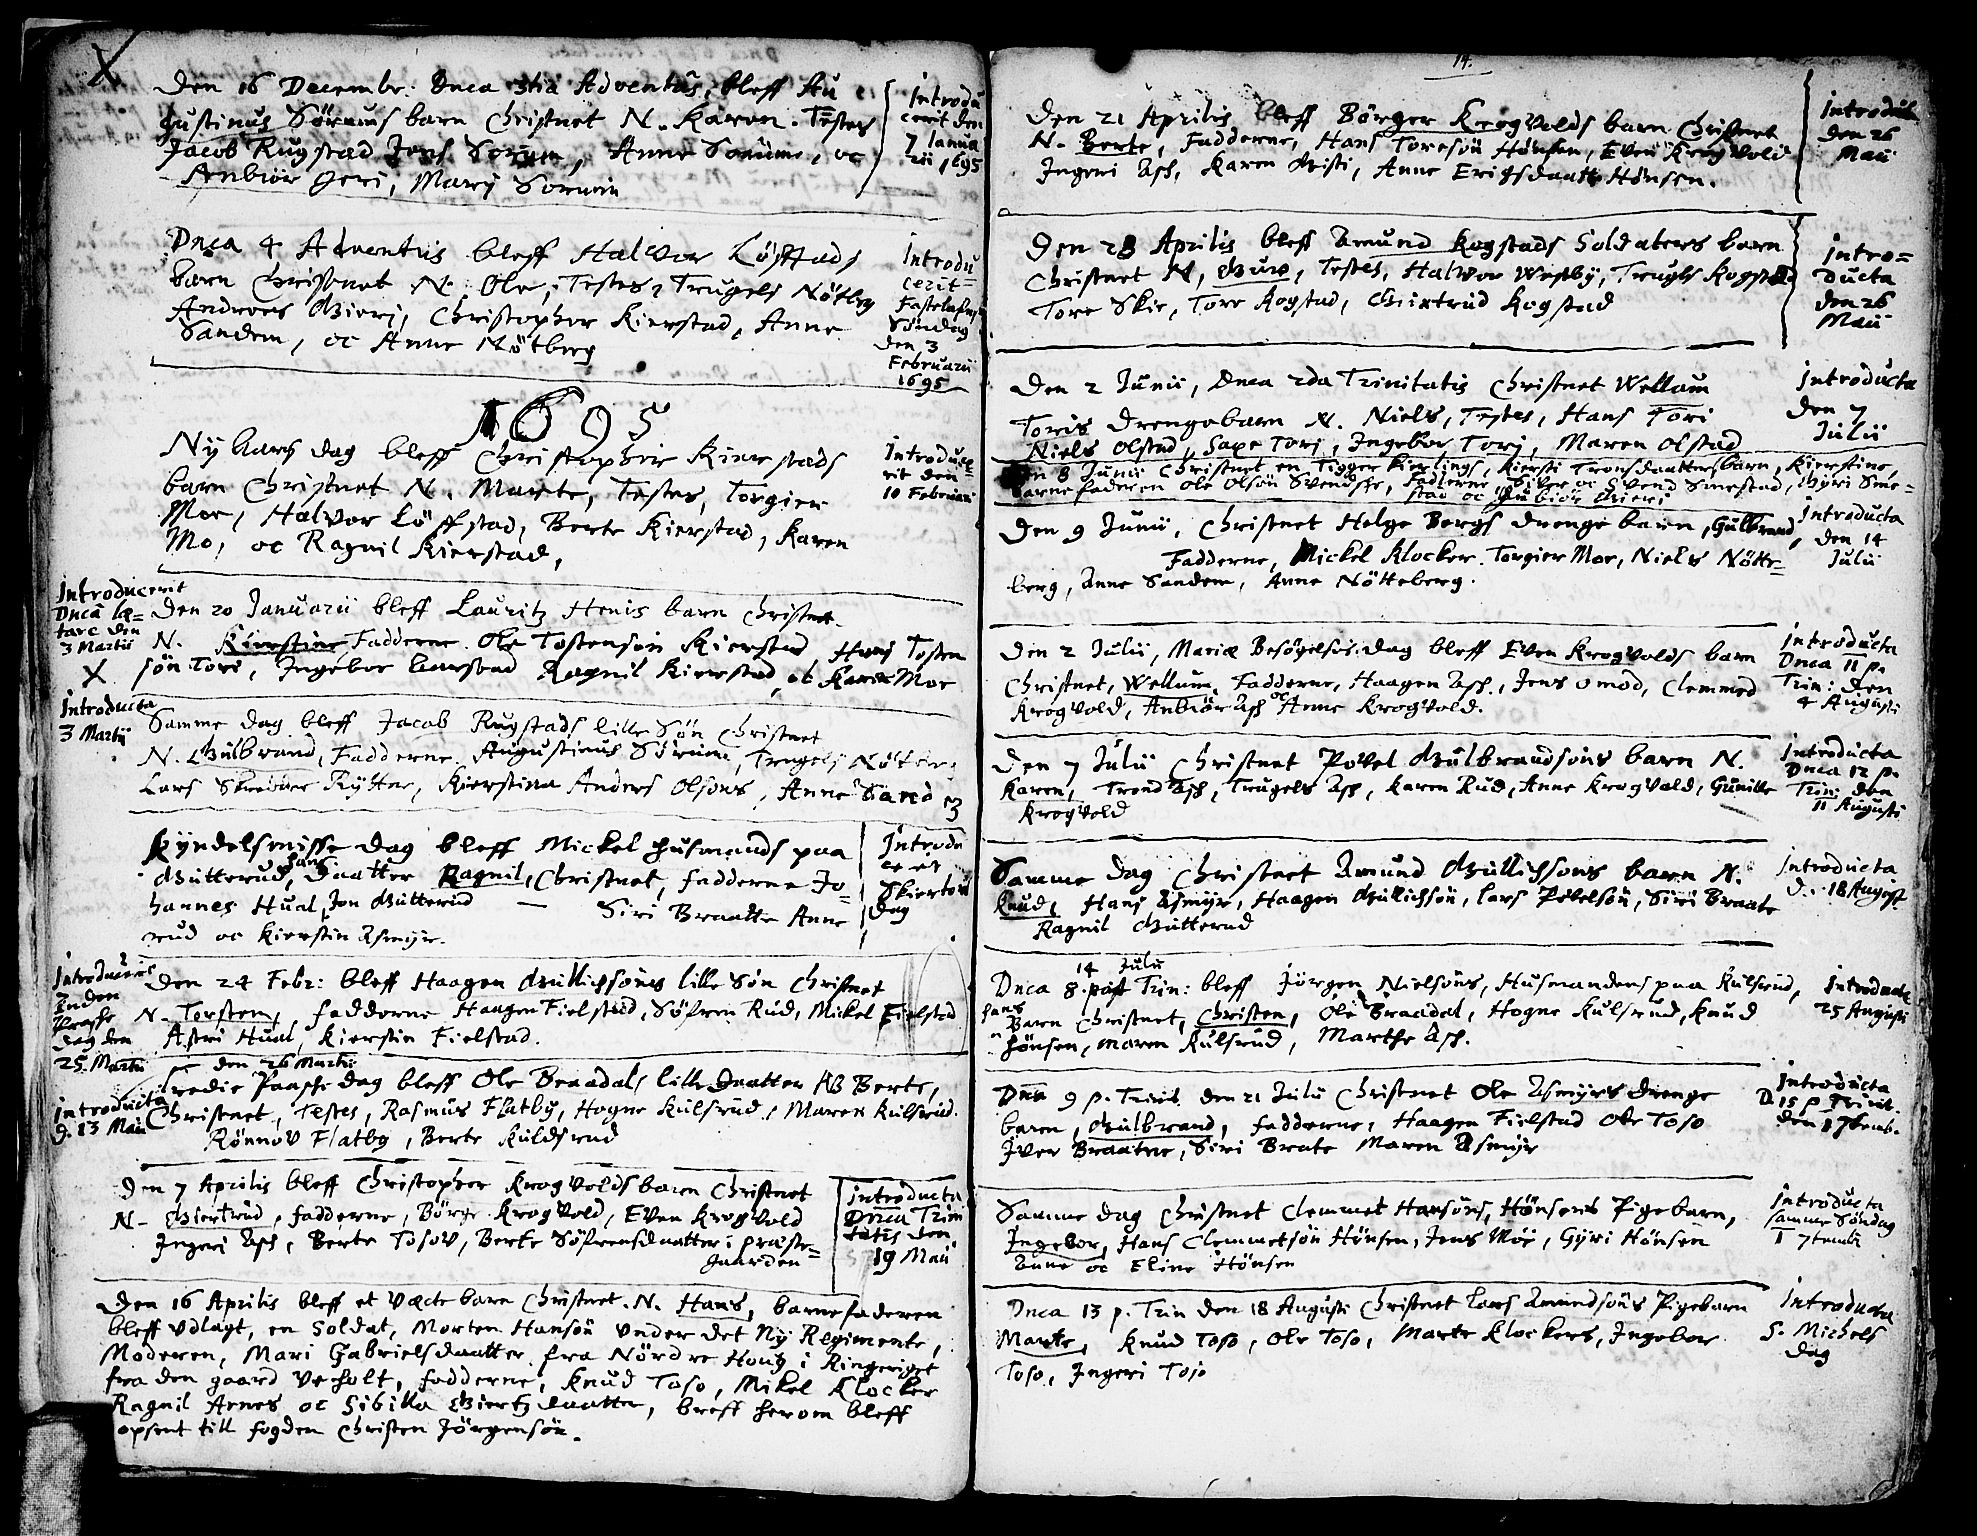 X
Den 16 Decembr: Dnca 3tia Adventus, bleff Au
gustinus Sörums barn Christnet N. Karen. Testes
Jacob Rugstad Jens Sorum, Anne Sorums, oc
Anbiör Geri, Marij Sorum
Introdu
cerit den
7 Janua
rii 1695
Dnca 4 Adventus bleff Halvor Löfstads
barn Christnet N. Ole, Testes, Trugels Nötbeg
Andreas Gieri, Christopher Kierstad, Anne
Sandem, oc Anne Nötberg
Introdu
cerit
Fastelafns
Söndag
den 3
Februarii
1695
1695
Nÿ Aars dag bleff Christophir Kierstads
barn Christnet N. Marte, Testes, Torgier
Moe, Halvor Löffstad, Berte Kierstad, Karen
Mo, oc Ragnil Kierstad,
Introduce
rit den
10 Februari
Introducerit
Dnca læ=
tare den
3 Martii
X
Den 20 Januarii bleff Lauritz Henis barn Christnet
N. Kierstine Fadderne Ole Tostensön Kierstad Hans Tosten
sön Tori, Ingebor Aarstad Ragnil Kierstad, oc Karen Moe
Introducta
3 Martii
Samme dag bleff Jacob Rugstads lille Sön Christnet
N. Gulbrand, Fadderne Augustinus Sörum, Trugels Nötber
Lars Skredder Rytter, Kierstina Anders Olsöns, Anne Sand
Kyndelsmisse dag bleff Mickel Husmands paa
Gutterud, hans Daatter Ragnil, Christnet, fadderne Jo=
hannes Hual, Jon Gutterud — Siri Braatte Anne
rud oc Kierstin Asmyr.
Introdu
cerit
Skiertors
dag
Den 24 Febr: bleff Haagen Gullichsöns lille Sön Christnet
N. Torsten, fadderne Haagen Fielstad, Söfren Rud, Mikel Fielstad
Astri Hual, Kierstin Fielstad.
den
Paasche
dag den
25. Martii
den 26 Martii
Tredie Paasche dag bleff Ole Braadals lille Daatter Berte,
Christnet, Testes, Rasmus Flatby, Hogne Kulsrud, Maren Kulsrud.
Rönnov Flatby, Berte Kuldsrud
introducta
d. 13 Maii
Den 7 Aprilis bleff Christopher Krogvolds barn Christnet
N- Giertrud, fadderne, Börge Krogvold, Even Krogvold
Ingeri Asch, Berte Tosov, Berte Söfrensdaatter i præste=
gaarden
introducta
Dnca Trini
tatis den
19 Maii
Den 16 Aprilis bleff et Væcte barn Christnet. N. Hans, barnefaderen
bleff Vdlagt, en Soldat, Morten Hansön Under det Nÿ Regimente,
Moderen, Mari Gabrielsdaatter fra Nördre Hong i Ringeriget
fra den gaard Veholt, fadderne, Knud Toso, Mikel Klocker
Ragnil Arnes oc Sibilla Giertz daatter, breff herom bleff
opsent till fogden Christen Jörgensön.
14.
Den 21 Aprilis bleff Börger Krogvolds barn Christnet
N. Berte, Fadderne, Hans Toresön Hönsen, Even Krogvold
Ingeri Asch, Karen Misti, Anne Erichsdaatter Hönsen.
Introducta
den 26
Maii
Den 28 Aprilis bleff Amund Kogstads Soldaters barn
Christnet N, Guro, Testes, Halvor Westby, Trugls Kogstad
Tore Skie, Tore Kogstad, Giertrud Kogstad
Intro=
ducta
den 26
Maii
Den 2 Junii, Dnca 2da Trinitatis Christnet Wellum
Toris Drengebarn N. Niels, Testes, Hans Tori
Niels Olstad, Saxe Tori, Ingebor Tori, Maren Olstad
Introducta
den 7
Julii
Den 8 Junii Christnet en Tigger Kierlings, Kiersti Tronsdaatters barn, Kierstine,
barnefaderen Ole Olsön Svendsche, Fadderne Siver oc Svend Smestad, Gÿri Sme=
stad oc Gubiör Gieri
Den 9 Junii, Christnet Helge Bergs drenge barn, Gulbrand,
Fadderne, Mickel Klocker. Torgier Moe, Niels Nötte=
berg, Anne Sandem, Anne Nötteberg.
Introducta
den 14
Julii
Den 2 Julii, Mariæ Besögelsis dag bleff Even Krogvolds barn
Christnet, Wellum, Fadderne, Haagen Asch, Jens Omod, Clemmed
Krogvold, Anbiör Asch oc Anne Krogvold.
Introducta
Dnca 11 p.
Trin: den
4 Augusti
Den 7 Julii Christnet Povel Gulbrandsöns barn N.
Karen, Trond Asch, Trugels Asch, Karen Rud, Anne Krogvold, Gunille
Krogvold
Introducta
Dnca 12 p.
Trin: den
11 Augusti
Samme dag Christnet Amund Gullichsöns barn N.
Knud, Hans Asmyr, Haagen Gullichsön, Lars Povelsön, Siri Braate
Ragnil Gutterud
Introducta
d. 18 August
14 Julii
Dnca 8. post Trin: bleff Jörgen Nielsöns, Husmandens paa Kulsrud,
hans
Barn Christnet, Christen, Ole Braadal, Hogne Kulsrud, Knud
Hönsen, Maren Kulsrud, Marthe Asch.
Introducta
25 Augusti
Dnca 9 p. Trinit. den 21 Julii Christnet Ole Asmyrs drenge
baren, Gulbrand, fadderne, Haagen Fielstad Ole Toso
Iver Braatne, Siri Brate Maren Asmyr
Introducta
D. 15 p Trinit.
den 1 7temb.
Samme dag Christnet Clemmet Hansöns, Hönsens Pigebarn,
Ingebor, Hans Clemmetsön Hönsen, Jens Moe, Gÿri Hönsen
Anne oc Eline Hönsen
Introducta
samme Söndag
1 7tembr
Dnca 13 p. Trin den 18 Augusti Christnet Lars Amundsöns Pigebarn
Marte, Knud Toso, Ole Toso, Marte Klockers, Ingebor
Toso, Ingeri Toso
Introducta
S. Michels
dag